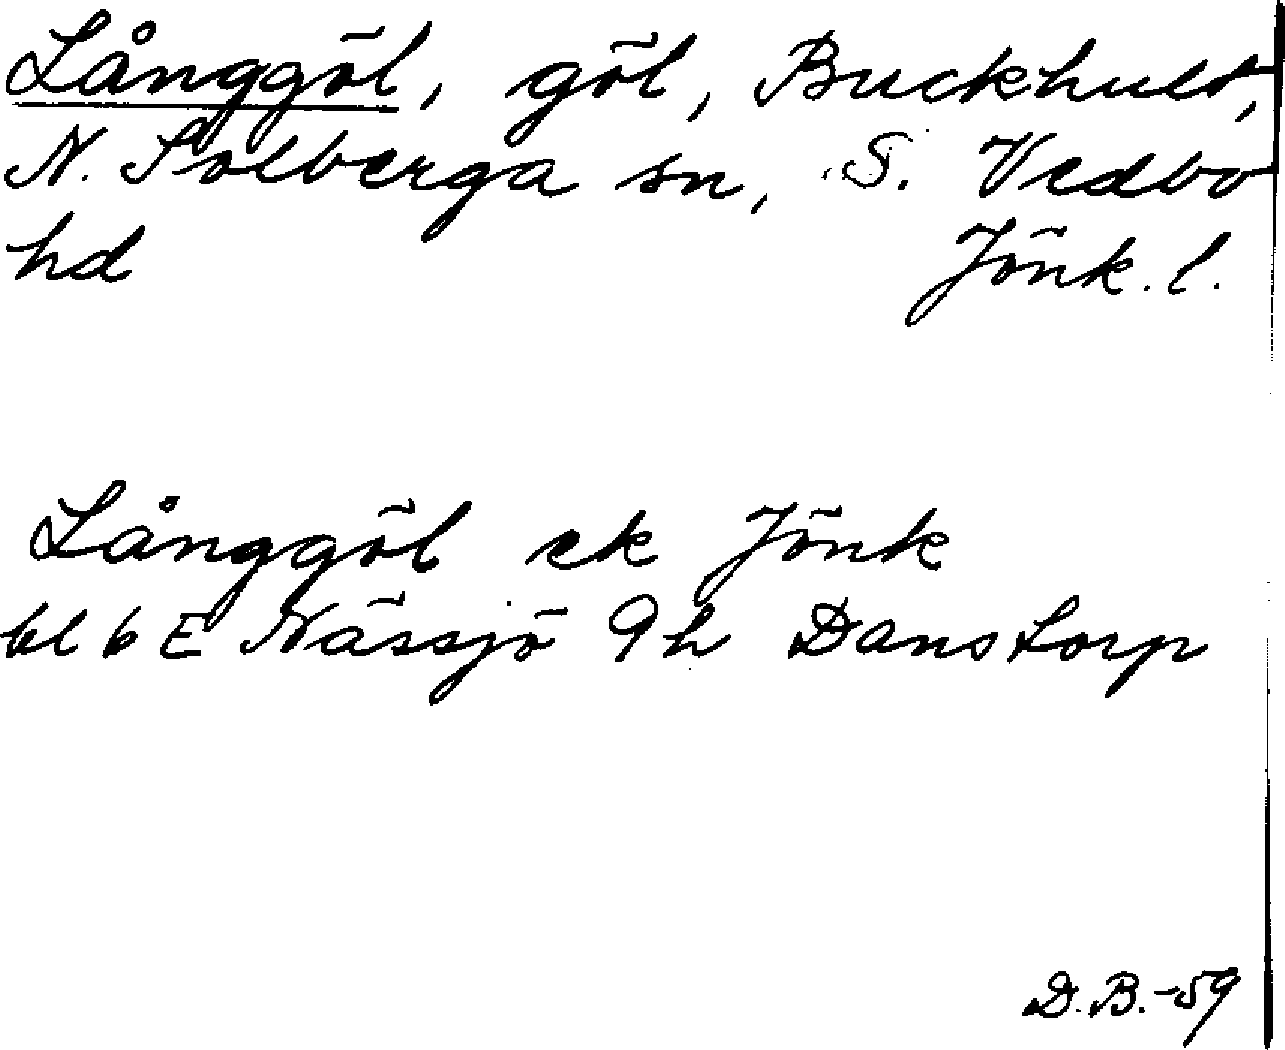 Långgöl, göl, Buckhult,
N. Solberga sn, S. Vedbo
hd Jönk. l.
Långgöl ek Jönk
bl 6 E Nässjö 9h Danstorp
D.B.-59